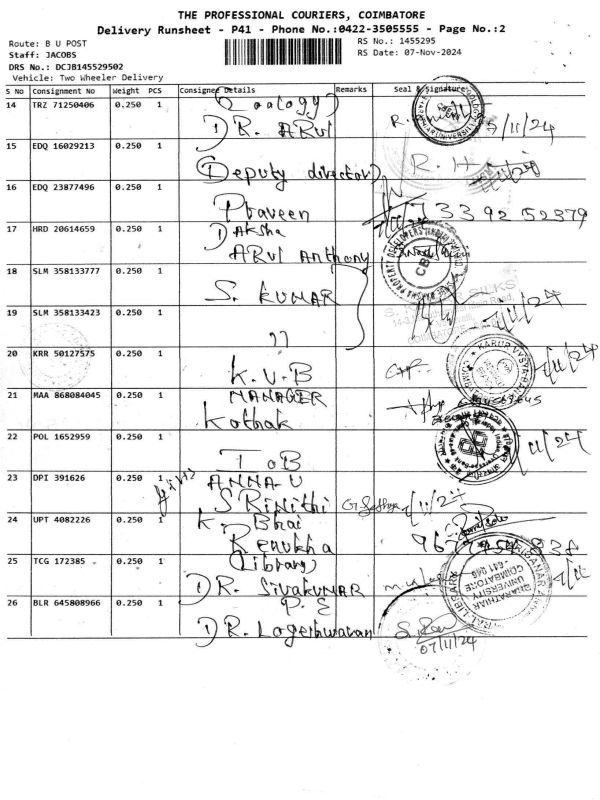 THE PROFESSIONAL COURIERS, COIMBATORE
Delivery Runsheet - P41 - Phone No.:0422-3505555 - Page No.:2
Route: B U POST RS No.: 1455295
Staff: JACOBS RS Date: 07-Nov-2024
DRS No.: DCJB145529502
Vehicle: Two Wheeler Delivery
S No Consignment No Weight PCS Consignee Details Remarks Seal & Signature
14 TRZ 71250406 0.250 1 Zoology)
DR. ARul 7/11/24
15 EDQ 16029213 0.250 1
(Deputy director) R. H
16 EDQ 23877496 0.250 1
Praveen 733 92 52379
17 HRD 20614659 0.250 1 DAksha
ARul Anthony
18 SLM 358133777 0.250 1
S. KUMAR
SILKS
19 SLM 358133423 0.250 1
"
20 KRR 50127575 0.250 1
K.V.B
21 MAA 868084045 0.250 1 MANAGER
Kothak
22 POL 1652959 0.250 1
IOB
23 DPI 391626 0.250 1 ANNA U
SRiNithi
24 UPT 4082226 0.250 1 K. Bhai
Renukha
25 TCG 172385 0.250 1 (library)
DR. SIVAKUMAR
BHARATHIAR
UNIVERSITY
COIMBATORE
641 046
26 BLR 645808966 0.250 1 P.E
DR. Logeshwaran
07/11/24